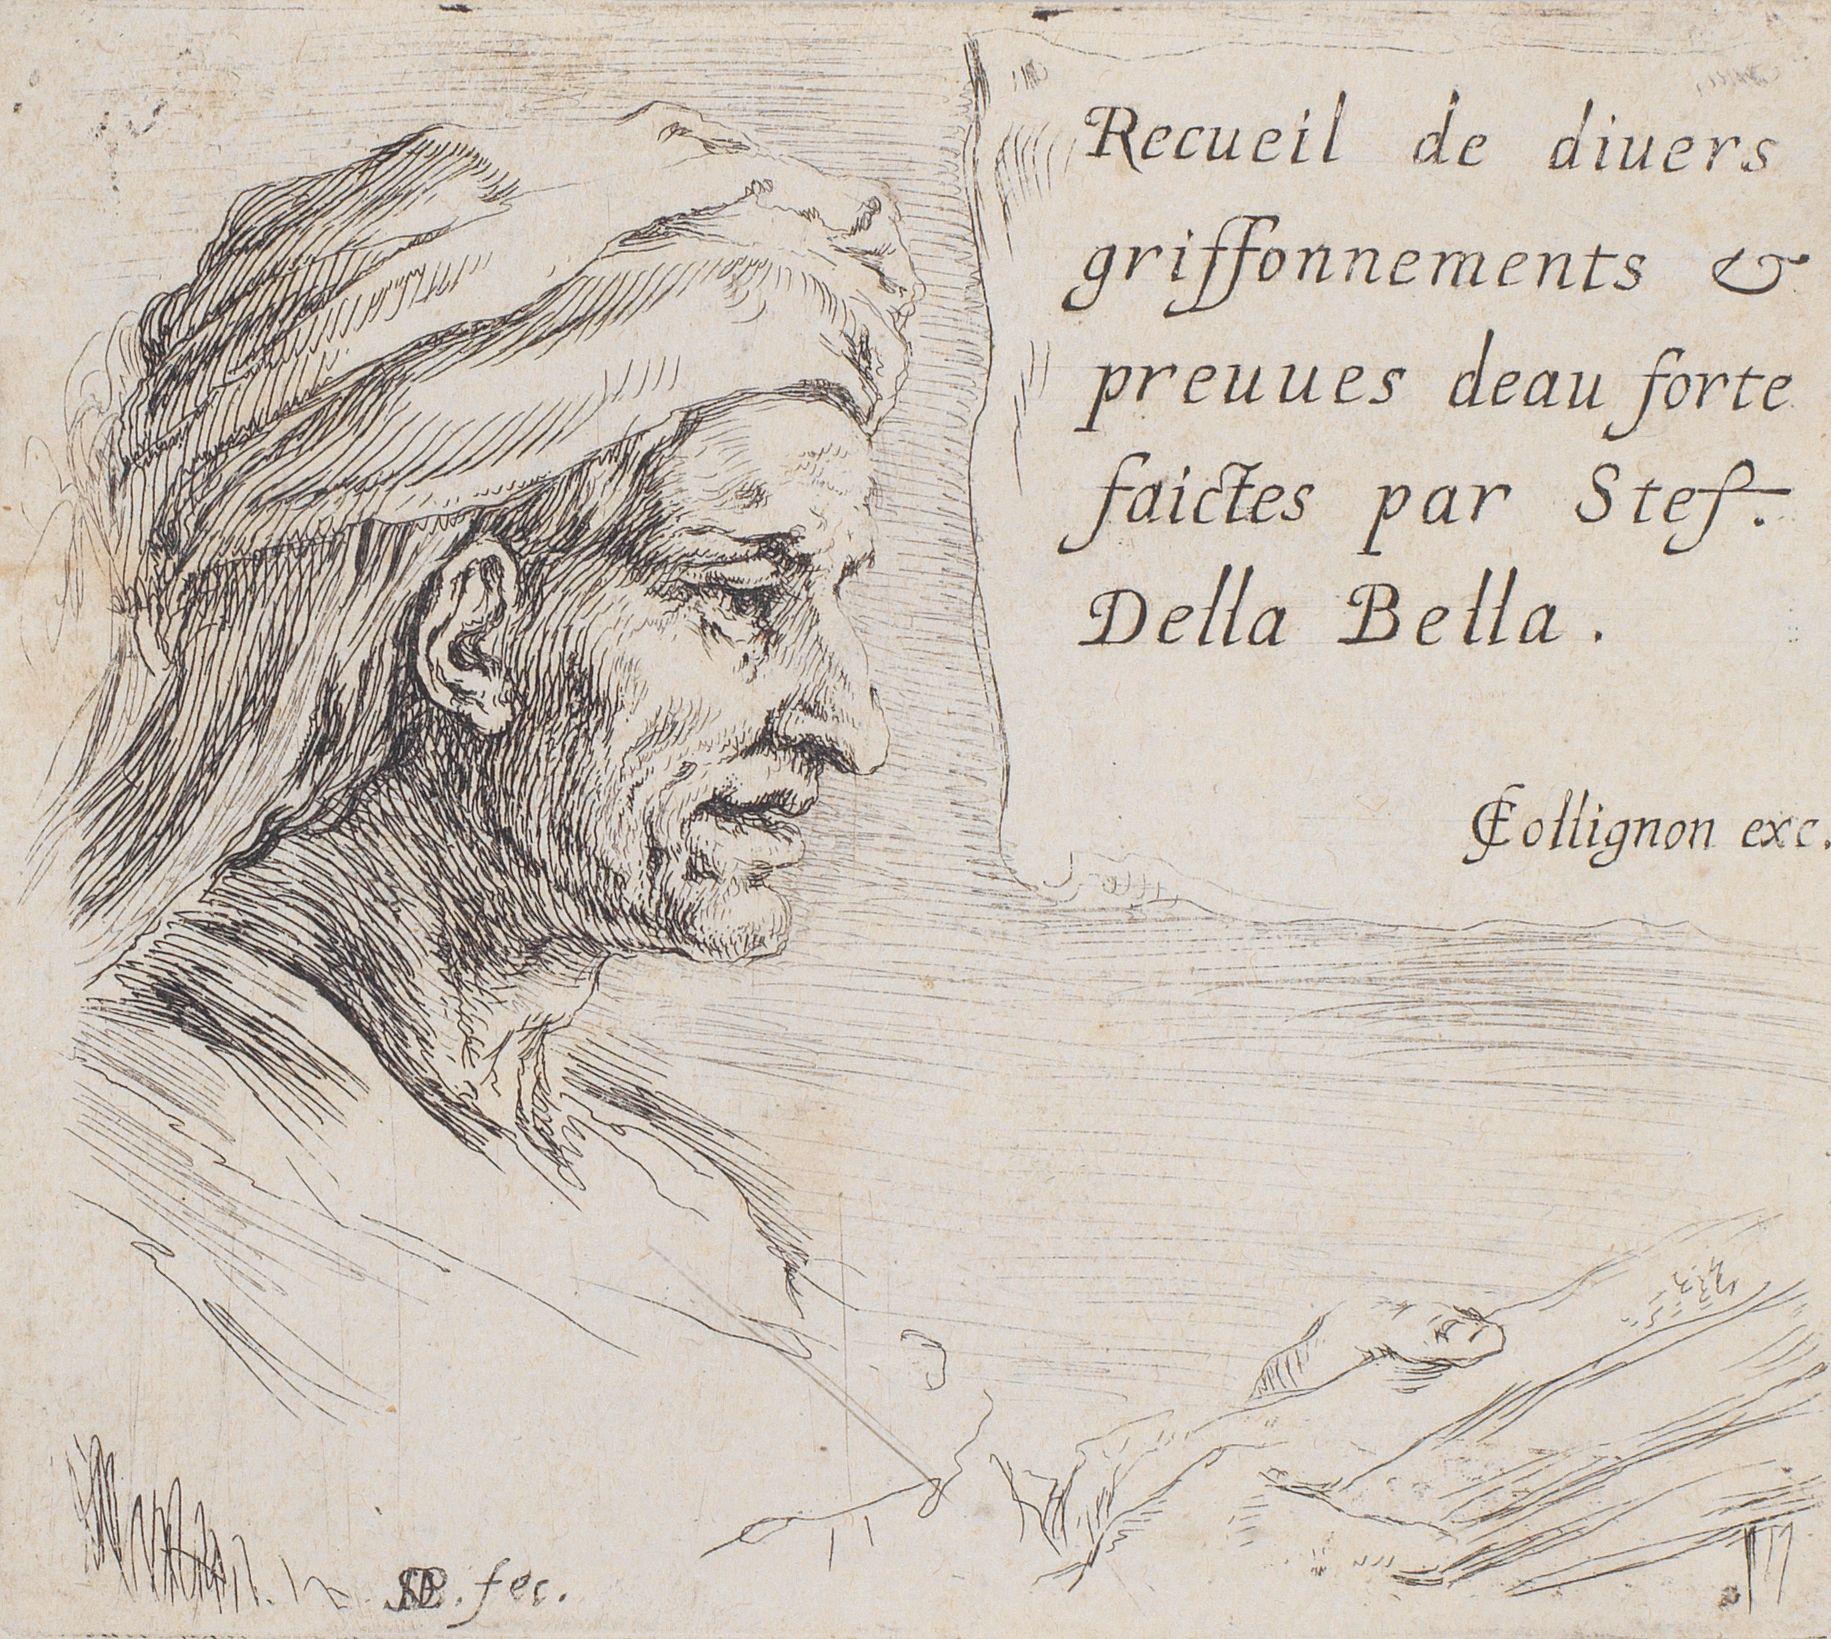 Recueil de diuers
griffonnements &
preuues deau forte
faictes par Stef.
Della Bella.
FCollignon exc.
SDB. fec.